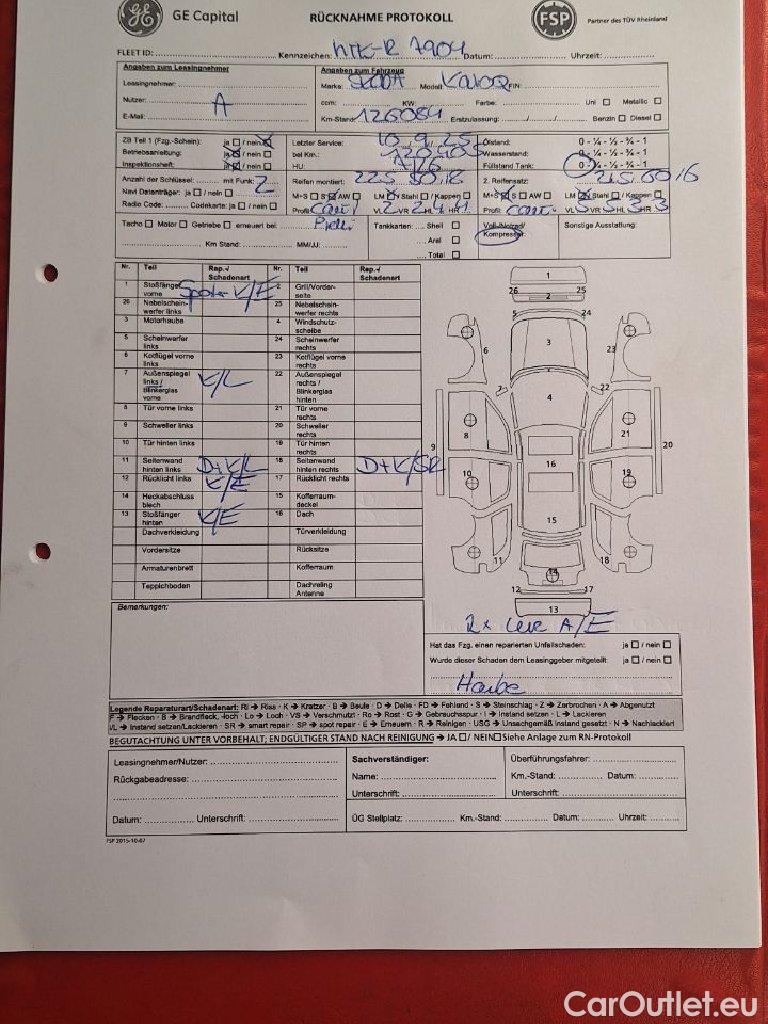 GE Capital RÜCKNAHME PROTOKOLL FSP Partner des TÜV Rheinland
FLEET ID: Kennzeichen: Datum: Uhrzeit:
Angaben zum Leasingnehmer Angaben zum Fahrzeug
Leasingnehmer: Marke: Skoda Modell: Karoq FIN:
Nutzer: A ccm: KW: Farbe: Uni Metallic
E-Mail: Km-Stand: 126084 Erstzulassung: Benzin Diesel
ZB Teil 1 (Fzg.-Schein): ja / nein Letzter Service: 10.9.25 Ölstand: 0 - ¼ - ½ - ¾ - 1
Betriebsanleitung: ja / nein bei Km.: Wasserstand: 0 - ¼ - ½ - ¾ - 1
Inspektionsheft: ja / nein HU: Füllstand Tank: 0 - ¼ - ½ - ¾ - 1
Anzahl der Schlüssel: mit Funk: 2 Reifen montiert: 225 50 18 2. Reifensatz:
Navi Datenträger: ja / nein M+S S AW LM Stahl / Kappen M+S S AW LM Stahl / Kappen
Radio Code: Codekarte: ja / nein Profil: VL VR HL HR Profil: VL VR HL HR
Tacho Motor Getriebe erneuert bei: Tankkarten: Shell Voll-/Notrad/ Sonstige Ausstattung:
Aral Kompressor
Km Stand: MM/JJ: Total
Nr. Teil Rep.-/ Schadenart Nr. Teil Rep.-/ Schadenart
1 Stoßfänger vorne K/E 2 Grill/Vorderseite
26 Nebelscheinwerfer links 25 Nebelscheinwerfer rechts
3 Motorhaube 4 Windschutzscheibe
5 Scheinwerfer links 24 Scheinwerfer rechts
6 Kotflügel vorne links 23 Kotflügel vorne rechts
7 Außenspiegel links / Blinkerglas vorne K/L 22 Außenspiegel rechts / Blinkerglas hinten
8 Tür vorne links 21 Tür vorne rechts
9 Schweller links 20 Schweller rechts
10 Tür hinten links 19 Tür hinten rechts
11 Seitenwand hinten links D+K/L 18 Seitenwand hinten rechts D+K/SR
12 Rücklicht links K/E 17 Rücklicht rechts
14 Heckabschlussblech 15 Kofferraumdeckel
13 Stoßfänger hinten K/E 16 Dach
Dachverkleidung Türverkleidung
Vordersitze Rücksitze
Armaturenbrett Kofferraum
Teppichboden Dachreling Antenne
Bemerkungen:
A/E
Hat das Fzg. einen reparierten Unfallschaden: ja / nein
Wurde dieser Schaden dem Leasinggeber mitgeteilt: ja / nein
Haube
Legende Reparaturart/Schadenart: RI → Riss · K → Kratzer · B → Beule · D → Delle · FD → Fehlend · S → Steinschlag · Z → Zerbrochen · A → Abgenutzt
F → Flecken · B → Brandfleck, -loch · Lo → Loch · VS → Verschmutzt · Ro → Rost · G → Gebrauchsspur · I → Instand setzen · L → Lackieren
I/L → Instand setzen/Lackieren · SR → smart repair · SP → spot repair · E → Erneuern · R → Reinigen · USG → Unsachgemäß instand gesetzt · N → Nachlackiert
BEGUTACHTUNG UNTER VORBEHALT; ENDGÜLTIGER STAND NACH REINIGUNG → JA / NEIN Siehe Anlage zum RN-Protokoll
Leasingnehmer/Nutzer: Sachverständiger: Überführungsfahrer:
Rückgabeadresse: Name: Km.-Stand: Datum:
Unterschrift: Unterschrift:
Datum: Unterschrift: ÜG Stellplatz: Km.-Stand: Datum: Uhrzeit:
FSP 2015-10-07
CarOutlet.eu